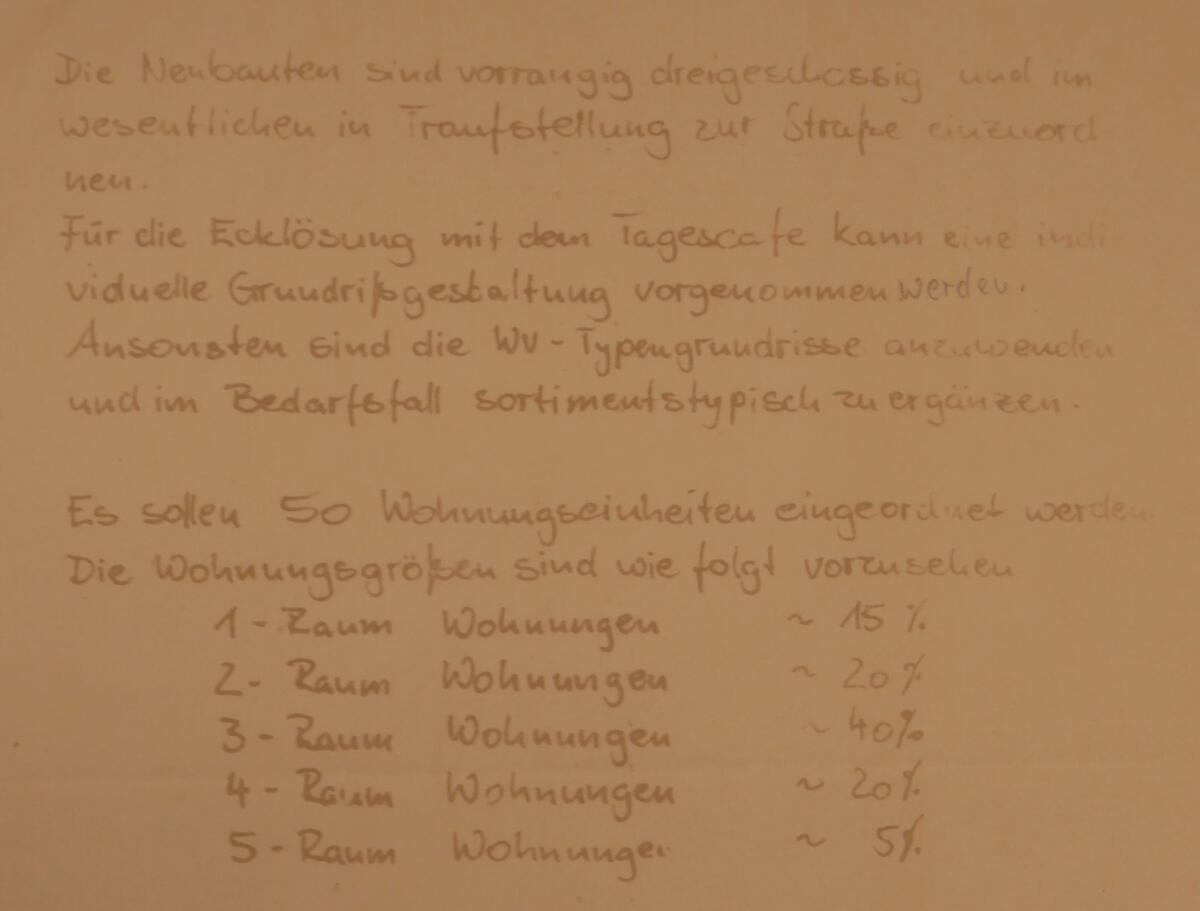 Die Neubauten sind vorrangig dreigeschossig und im
wesentlichen in Traufstellung zur Straße einzuord
nen.
Für die Ecklösung mit dem Tagescafe kann eine indi-
viduelle Grundrißgestaltung vorgenommen werden.
Ansonsten sind die WV-Typengrundrisse anzuwenden
und im Bedarfsfall sortimentstypisch zu ergänzen.
Es sollen 50 Wohnungseinheiten eingeordnet werden.
Die Wohnungsgrößen sind wie folgt vorzusehen
1-Raum Wohnungen ~ 15 %
2-Raum Wohnungen ~ 20 %
3-Raum Wohnungen ~ 40%
4-Raum Wohnungen ~ 20%
5-Raum Wohnungen ~ 5%